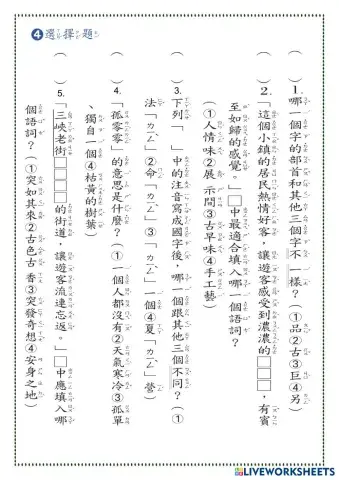 ❹選擇題
(　)1.哪一個字的部首和其他三個字不一樣？(①品②古③巨④另)
(　)2.「這個小鎮的居民熱情好客，讓遊客感受到濃濃的□□□，有賓
至如歸的感覺。」□中最適合填入哪一個語詞？
(①人情味②展示間③古早味④手工藝)
(　)3.下列「　」中的注音寫成國字後，哪一個跟其他三個不同？(①
法「ㄌㄧㄥˋ」②命「ㄌㄧㄥˋ」③「ㄌㄧㄥˋ」一個④夏「ㄌㄧㄥˋ」營)
(　)4.「孤零零」的意思是什麼？(①一個人都沒有②天氣寒冷③孤單
、獨自一個④枯黃的樹葉)
(　)5.「三峽老街□□□□的街道，讓遊客流連忘返。」□中應填入哪
個語詞？(①突如其來②古色古香③突發奇想④安身之地)
LIVEWORKSHEETS